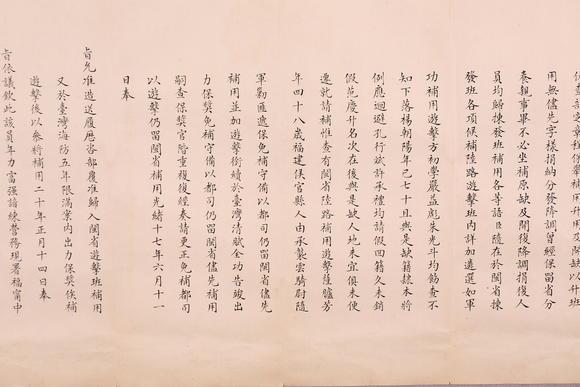 用無儘先字樣捐納分發降調曾經保留省分
養親事畢不必坐補原缺及開復降調捐復人
員均歸揀發班補用各等語臣隨在於閩省揀
發班各項候補陸路遊擊班內詳加遴選如軍
功補用遊擊方初學嚴益彪朱光斗均飭查不
知下落楊朝陽年已七十且與是缺籍隸本將
例應迴避孔行斌許承禮均請假回籍久未銷
假范慶升名次在後與是缺人地未宜俱未便
遷就請補惟查有閩省陸路補用遊擊陸臚芳
年四十八歲福建侯官縣人由承襲雲騎尉隨
軍勦匪遞保免補守備以都司仍留閩省儘先
補用並加遊擊銜續於臺灣清賦全功告竣出
力保獎免補守備以都司仍留閩省儘先補用
嗣查保獎官階重複後經奏請更正免補都司
以遊擊仍留閩省補用光緒十七年六月十一
日奉
旨允准造送履歷咨部覆准歸入閩省遊擊班補用
又於臺灣海防五年限滿案內出力保獎俟補
遊擊後以參將補用二十年正月十四日奉
旨依議欽此該員年力富強諳練營務現署福寧中